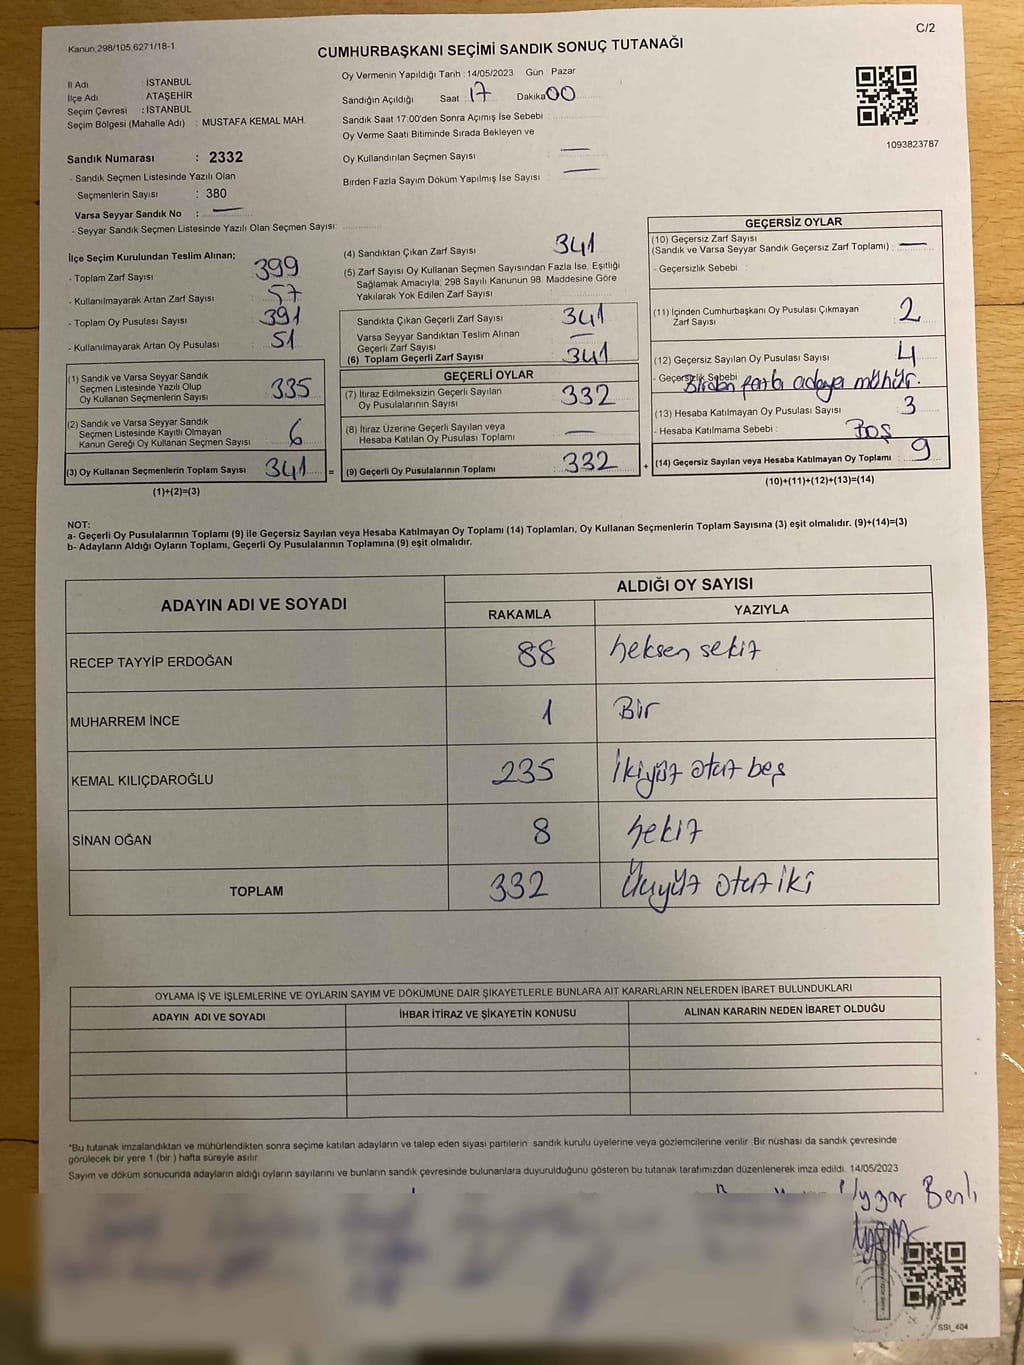 Kanun;298/105,6271/18-1
C/2
CUMHURBAŞKANI SEÇİMİ SANDIK SONUÇ TUTANAĞI
İl Adı : İSTANBUL
İlçe Adı : ATAŞEHİR
Seçim Çevresi : İSTANBUL
Seçim Bölgesi (Mahalle Adı) : MUSTAFA KEMAL MAH.
Sandık Numarası : 2332
- Sandık Seçmen Listesinde Yazılı Olan
Seçmenlerin Sayısı : 380
Varsa Seyyar Sandık No : —
- Seyyar Sandık Seçmen Listesinde Yazılı Olan Seçmen Sayısı:
Oy Vermenin Yapıldığı Tarih : 14/05/2023 Gün Pazar
Sandığın Açıldığı Saat 17 Dakika 00
Sandık Saat 17:00'den Sonra Açımış İse Sebebi
Oy Verme Saati Bitiminde Sırada Bekleyen ve
Oy Kullandırılan Seçmen Sayısı —
Birden Fazla Sayım Döküm Yapılmış İse Sayısı —
1093823787
İlçe Seçim Kurulundan Teslim Alınan;
- Toplam Zarf Sayısı 399
- Kullanılmayarak Artan Zarf Sayısı 57
- Toplam Oy Pusulası Sayısı 391
- Kullanılmayarak Artan Oy Pusulası 51
(1) Sandık ve Varsa Seyyar Sandık
Seçmen Listesinde Yazılı Olup
Oy Kullanan Seçmenlerin Sayısı 335
(2) Sandık ve Varsa Seyyar Sandık
Seçmen Listesinde Kayıtlı Olmayan
Kanun Gereği Oy Kullanan Seçmen Sayısı 6
(3) Oy Kullanan Seçmenlerin Toplam Sayısı 341 =
(1)+(2)=(3)
(4) Sandıktan Çıkan Zarf Sayısı 341
(5) Zarf Sayısı Oy Kullanan Seçmen Sayısından Fazla İse, Eşitliği
Sağlamak Amacıyla; 298 Sayılı Kanunun 98. Maddesine Göre
Yakılarak Yok Edilen Zarf Sayısı
Sandıkta Çıkan Geçerli Zarf Sayısı 341
Varsa Seyyar Sandıktan Teslim Alınan
Geçerli Zarf Sayısı —
(6) Toplam Geçerli Zarf Sayısı 341
GEÇERLİ OYLAR
(7) İtiraz Edilmeksizin Geçerli Sayılan
Oy Pusulalarının Sayısı 332
(8) İtiraz Üzerine Geçerli Sayılan veya
Hesaba Katılan Oy Pusulası Toplamı —
(9) Geçerli Oy Pusulalarının Toplamı 332 +
GEÇERSİZ OYLAR
(10) Geçersiz Zarf Sayısı
(Sandık ve Varsa Seyyar Sandık Geçersiz Zarf Toplamı) : —
- Geçersizlik Sebebi :
(11) İçinden Cumhurbaşkanı Oy Pusulası Çıkmayan
Zarf Sayısı 2
(12) Geçersiz Sayılan Oy Pusulası Sayısı 4
- Geçersizlik Sebebi Birden fazla adaya mühür.
(13) Hesaba Katılmayan Oy Pusulası Sayısı 3
- Hesaba Katılmama Sebebi : Boş
(14) Geçersiz Sayılan veya Hesaba Katılmayan Oy Toplamı : 9
(10)+(11)+(12)+(13)=(14)
NOT:
a- Geçerli Oy Pusulalarının Toplamı (9) ile Geçersiz Sayılan veya Hesaba Katılmayan Oy Toplamı (14) Toplamları, Oy Kullanan Seçmenlerin Toplam Sayısına (3) eşit olmalıdır. (9)+(14)=(3)
b- Adayların Aldığı Oyların Toplamı, Geçerli Oy Pusulalarının Toplamına (9) eşit olmalıdır.
ADAYIN ADI VE SOYADI
ALDIĞI OY SAYISI
RAKAMLA YAZIYLA
RECEP TAYYİP ERDOĞAN 88 seksen sekiz
MUHARREM İNCE 1 Bir
KEMAL KILIÇDAROĞLU 235 İkiyüz otuz beş
SİNAN OĞAN 8 sekiz
TOPLAM 332 Üçyüz otuz iki
OYLAMA İŞ VE İŞLEMLERİNE VE OYLARIN SAYIM VE DÖKÜMÜNE DAİR ŞİKAYETLERLE BUNLARA AİT KARARLARIN NELERDEN İBARET BULUNDUKLARI
ADAYIN ADI VE SOYADI İHBAR İTİRAZ VE ŞİKAYETİN KONUSU ALINAN KARARIN NEDEN İBARET OLDUĞU
*Bu tutanak imzalandıktan ve mühürlendikten sonra seçime katılan adayların ve talep eden siyasi partilerin sandık kurulu üyelerine veya gözlemcilerine verilir. Bir nüshası da sandık çevresinde
görülecek bir yere 1 (bir ) hafta süreyle asılır.
Sayım ve döküm sonucunda adayların aldığı oyların sayılarını ve bunların sandık çevresinde bulunanlara duyurulduğunu gösteren bu tutanak tarafımızdan düzenlenerek imza edildi. 14/05/2023
Uygar Benli
SSI_404